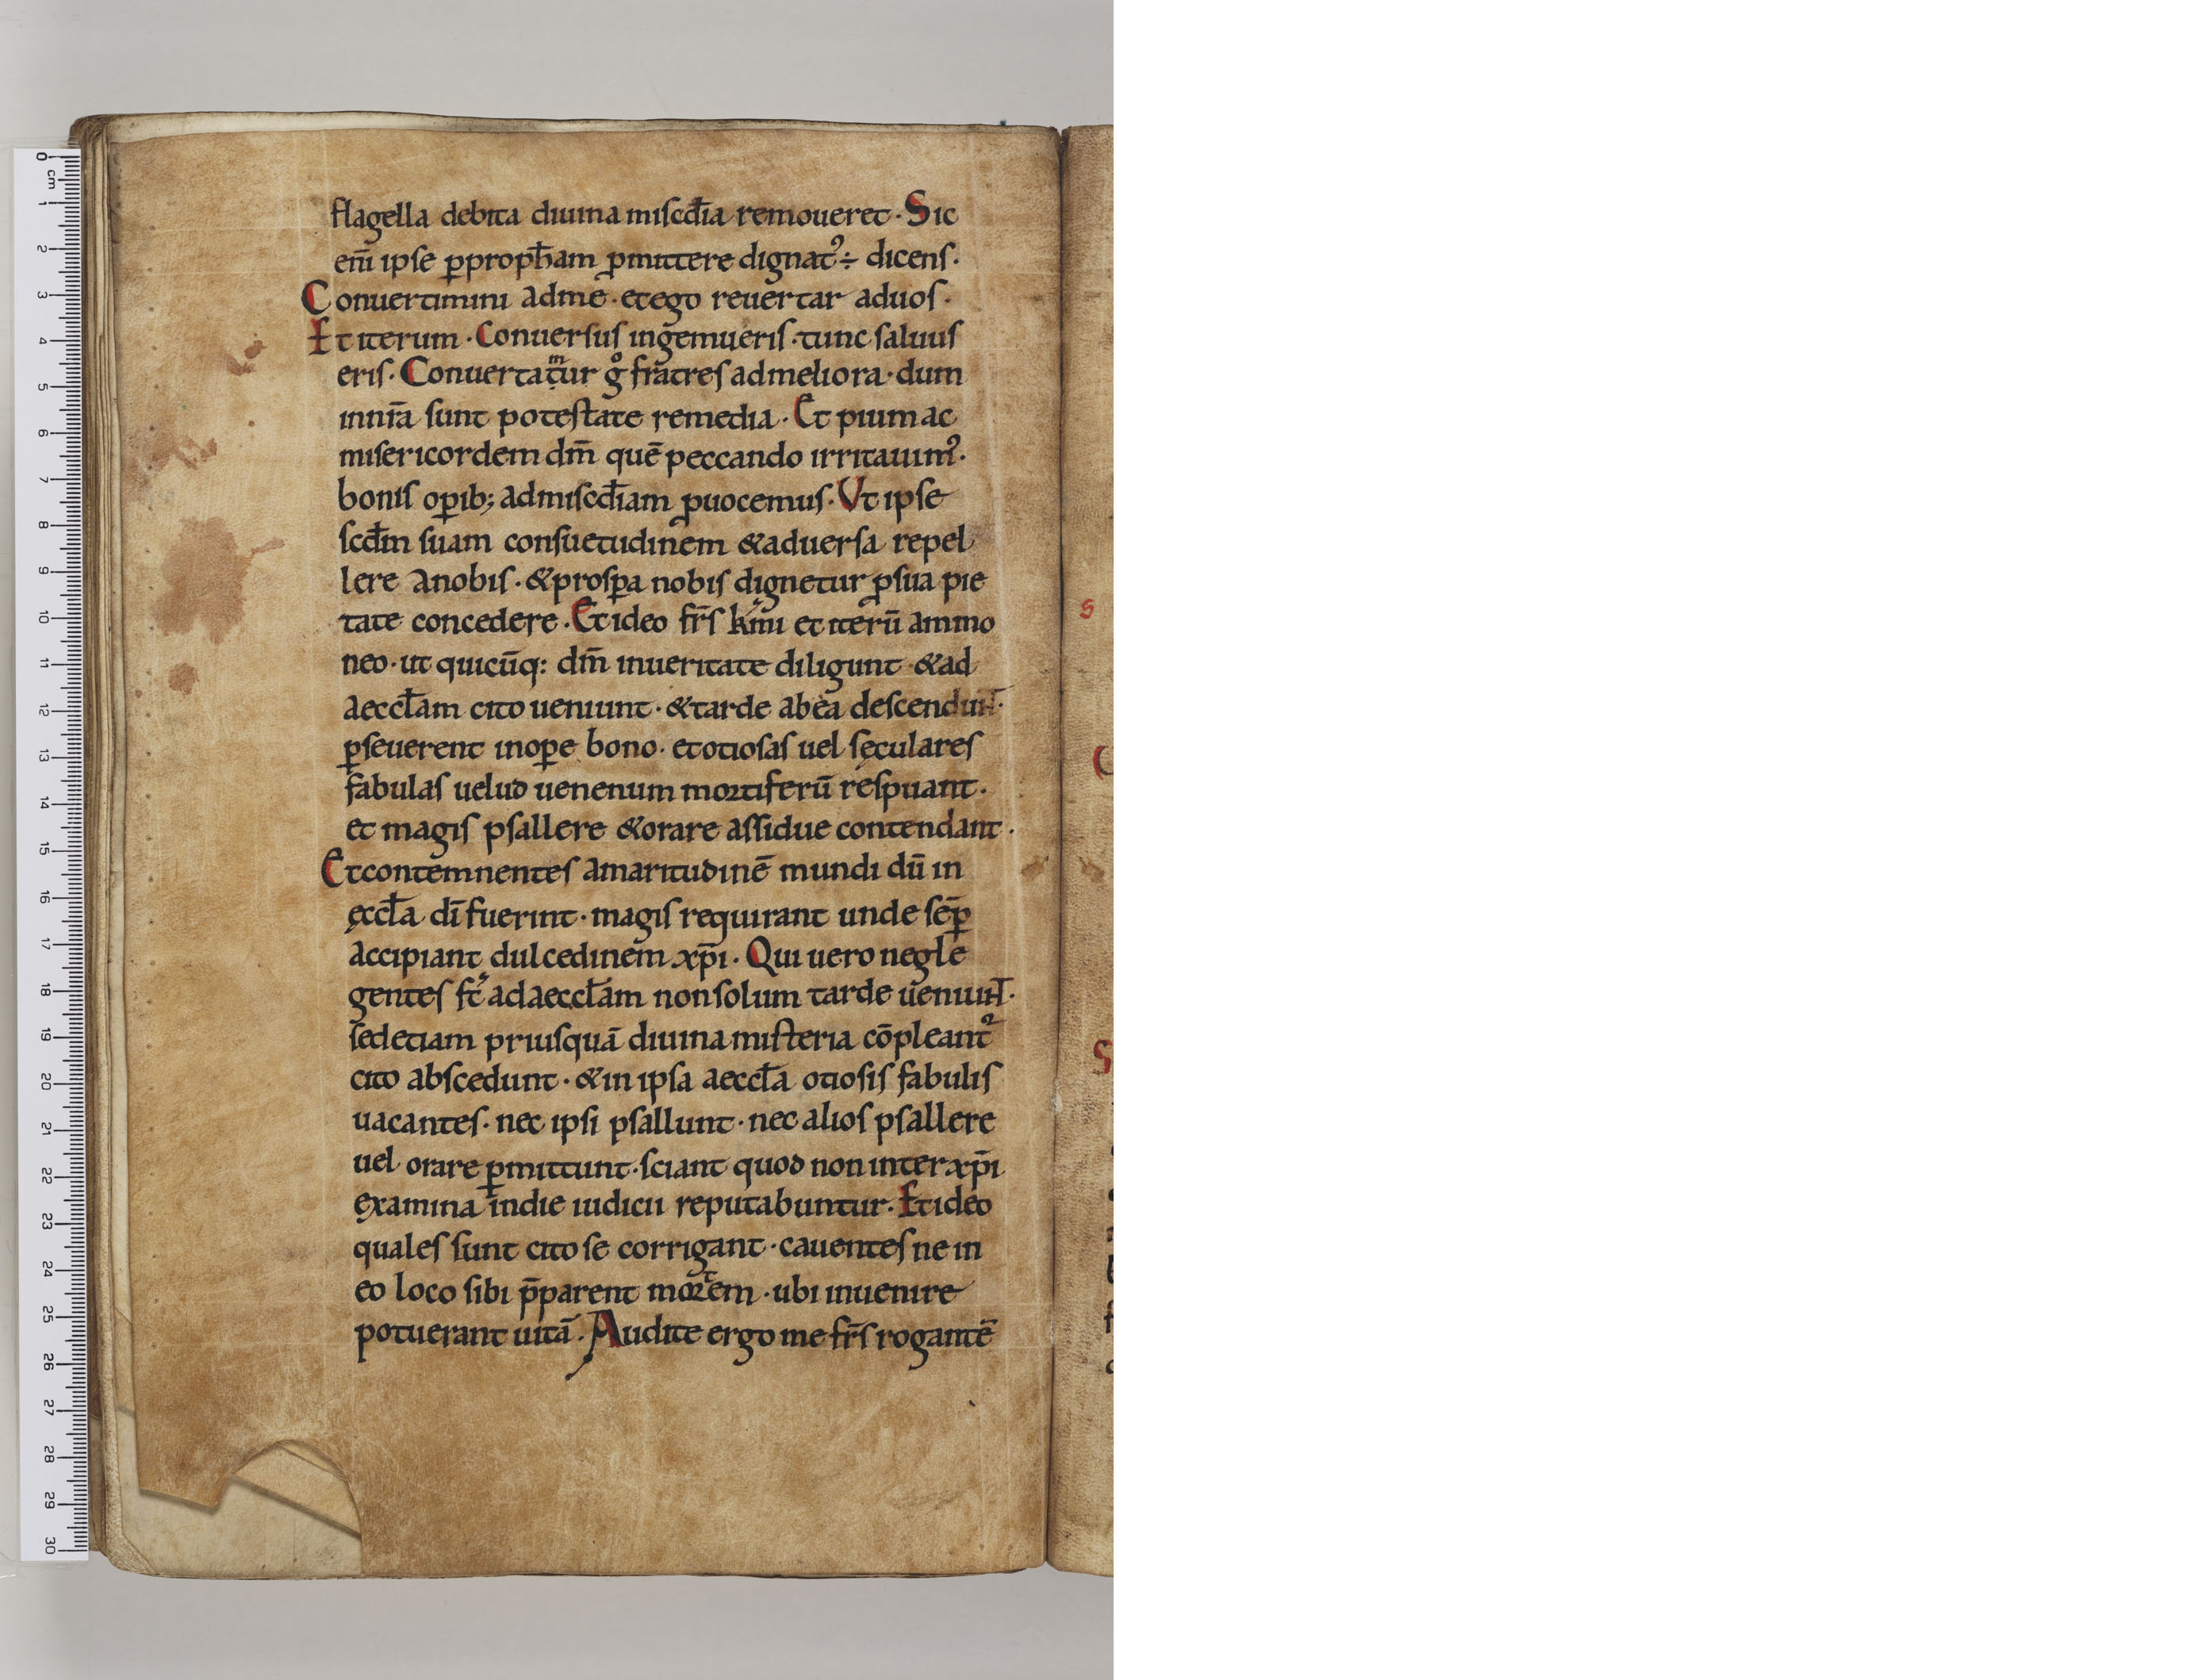 flagella debita diuina misc̄dia remoueret · Sic
eni̅ ipse ꝑproph̅am ꝓmittere dignat᷒ ÷ dicens ·
Conuertimini adme · etego reuertar aduos ·
Et iterum · Conuersus ingemueris · tunc saluus
eris · Conuertatur gͦ fratres admeliora · dum
m
innr̅a sunt potestate remedia · Et pium ac
misericordem dm̅ quē peccando irritauim᷒ ·
bonis oꝑib; admiscd̅iam ꝓuocemus · Vt ipse
scd̅m suam consuetudinem &aduersa repel
lere anobis · &prosꝑa nobis dignetur ꝓsua pie
tate concedere · Et ideo fr̅s km̅i et iterū ammo
neo · ut quicūq: dm̅ inueritate diligunt · &ad
aeccl̅am cito ueniunt · &tarde abea descendunt ·
ꝑseuerent inoꝑe bono · etotiosas uel sęculares
fabulas uelud uenenum mortiferū respuant ·
et magis psallere &orare assidue contendant ·
Etcontemnentes amaritudinē mundi dū in
ęccl̅a di̅ fuerint · magis requirant unde sēꝑ
accipiant dulcedinem xp̅i · Qui uero negle
gentes st̅ adaeccl̅am nonsolum tarde ueniunt ·
sedetiam priusquā diuina misteria cōpleant᷒
cito abscedunt · &in ipsa aeccl̅a otiosis fabulis
uacantes · nec ipsi psallunt · nec alios psallere
uel orare ꝑmittunt · sciant quod non inter xp̅i
examina indie iudicii reputabuntur · Et ideo
quales sunt cito se corrigant · cauentes ne in
eo loco sibi p̅parent mortem · ubi inuenire
potuerant uitā · Audite ergo me fr̅s rogantē
0 cm 1 2 3 4 5 6 7 8 9 10 11 12 13 14 15 16 17 18 19 20 21 22 23 24 25 26 27 28 29 30